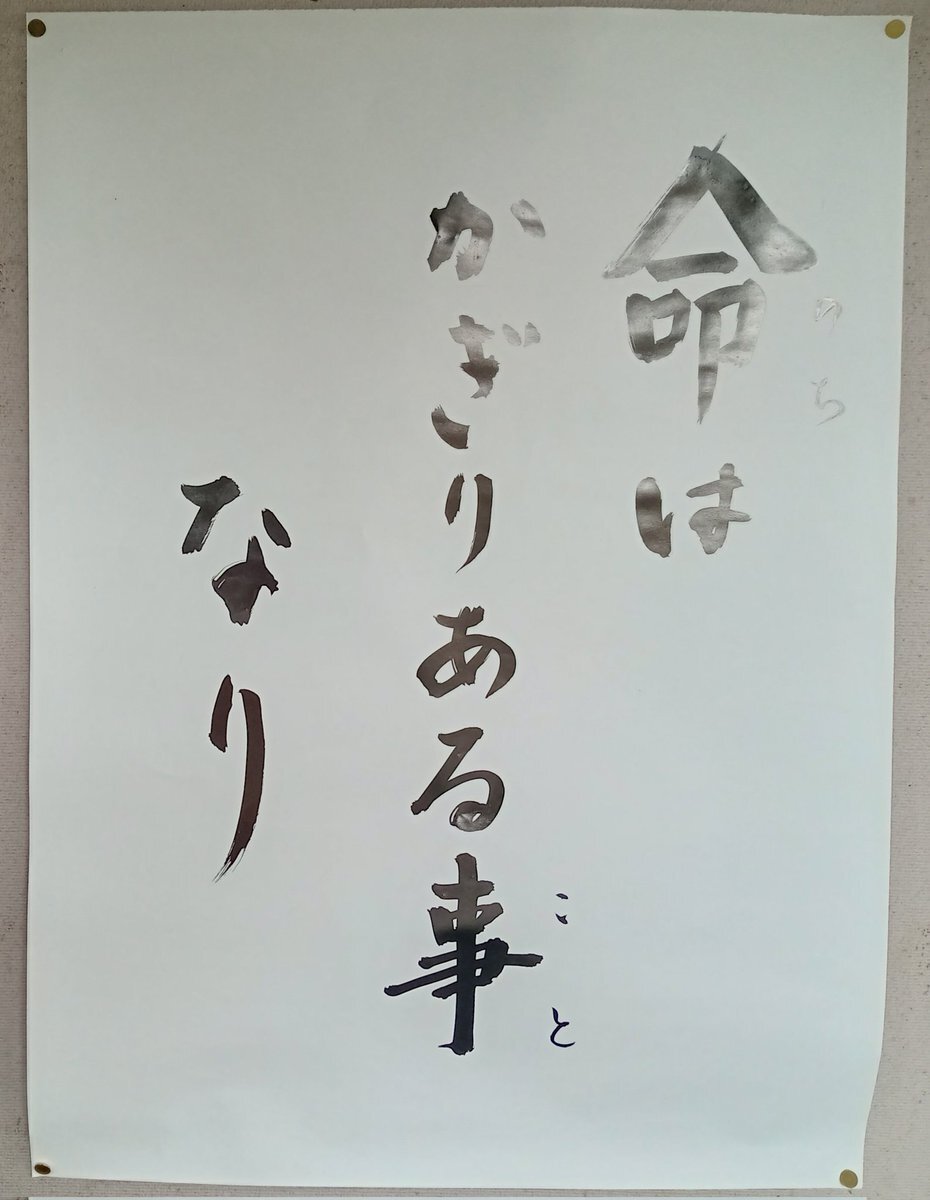 命は
のち
かぎりある事
こと
なり